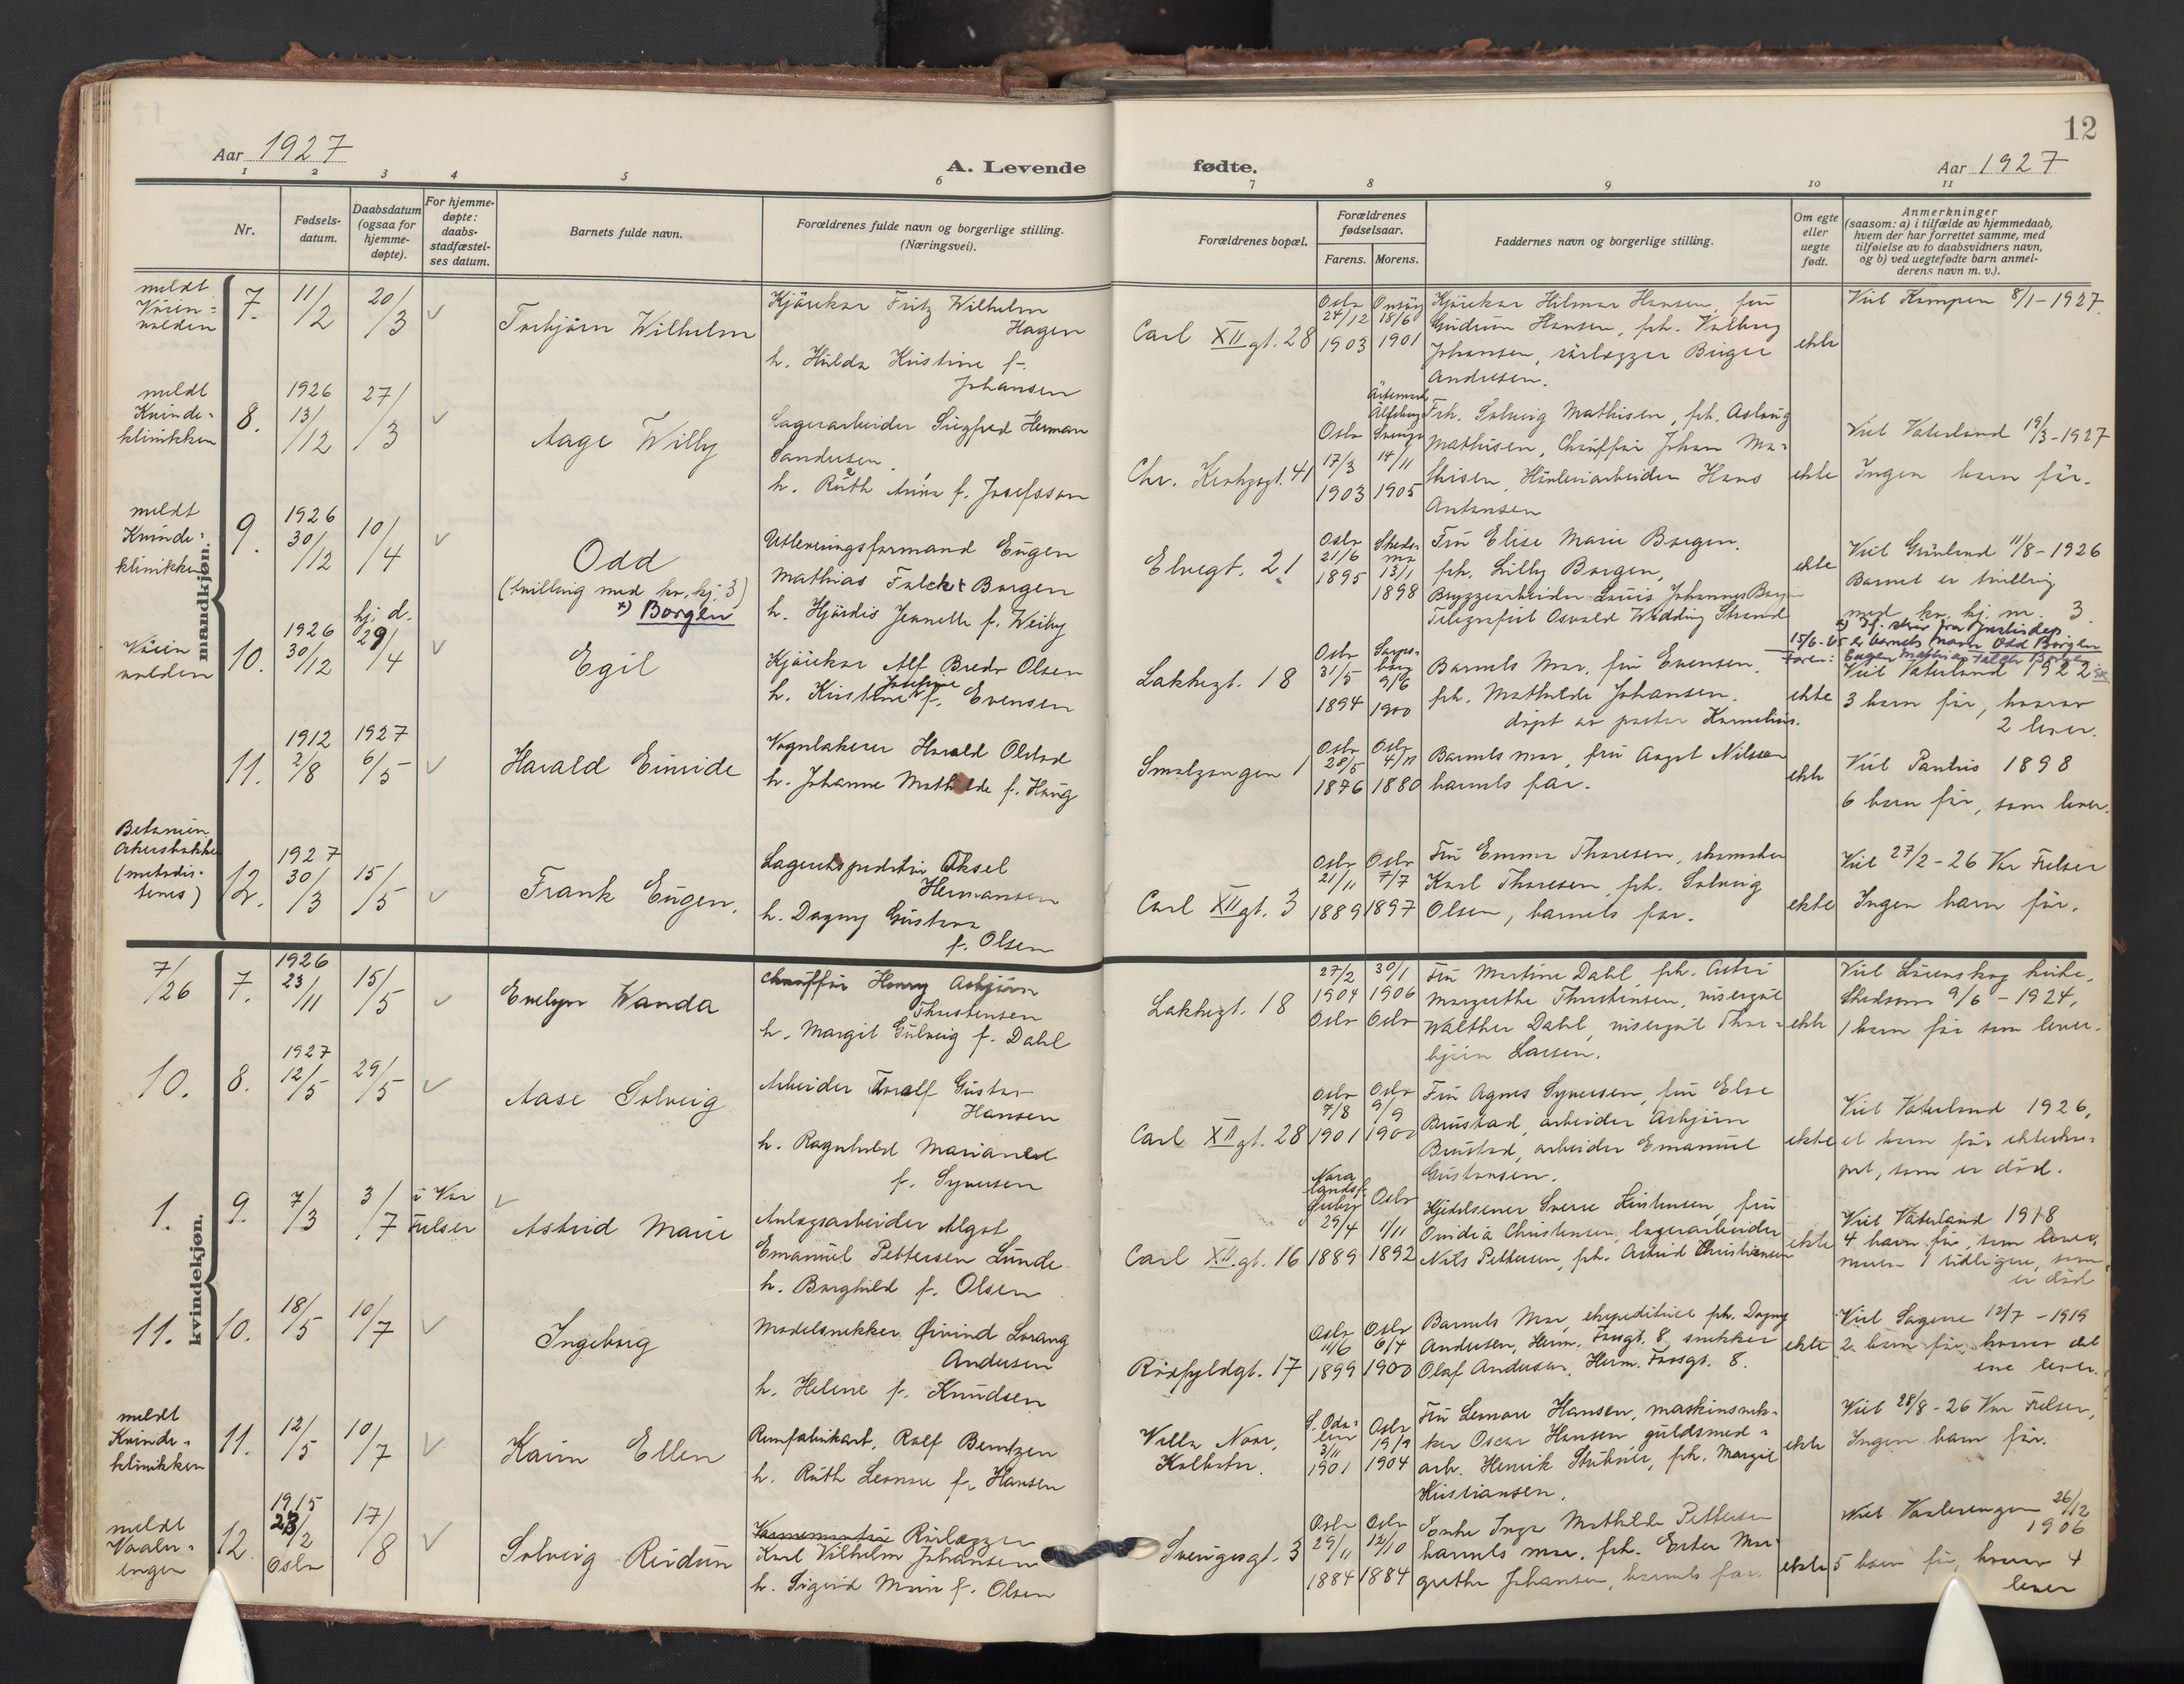 12
Aar 1927
A. Levende
fødte.
Aar 1927
1 2 3 4 5 6 7 8 9 10 11
Nr.
Fødsels-
datum.
Daabsdatum
(ogsaa for
hjemme-
døpte).
For hjemme-
døpte:
daabs-
stadfæstel-
ses datum.
Barnets fulde navn.
Forældrenes fulde navn og borgerlige stilling.
(Næringsvei).
Forældrenes bopæl.
Forældrenes
fødselsaar.
Farens. Morens.
Faddernes navn og borgerlige stilling.
Om egte
eller
uegte
født.
Anmerkninger
(saasom: a) i tilfælde av hjemmedaab,
hvem der har forrettet samme, med
tilføielse av to daabsvidners navn,
og b) ved uegtefødte barn anmel-
derens navn m. v.).
mandkjøn.
meldt
Våien-
volden
7.
11/2
20/3
Torbjørn Wilhelm
Kjørekar Fritz Wilhelm
Hagen
h. Hulda Kristine f.
Johansen
Carl XII gt. 28
Oslo
24/12
1903
Onsøy
18/6
1901
Kjørekar Hilmar Hansen, fru
Gudrun Hansen, frk. Valborg
Johansen, rørlægger Birger
Andersen.
ekte
Viet Kampen 8/1-1927.
meldt
Kvinde-
klinikken
8.
1926
13/12
27/3
Aage Willy
Lagerarbeider Sigfred Herman
Sandersen
h. Ruth Anna f. Josefsson
Chr. Krohgsgt. 41
Oslo
17/3
1903
14/11
1905
Frk. Solveig Mathisen, frk. Aslaug
Mathisen, Chauffør Johan Ma-
thisen, Hans
Antonsen
ekte
Viet Vaterland 19/3-1927
Ingen barn før.
meldt
Kvinde-
klinikken
9.
1926
30/12
10/4
Odd
(tvilling med kv. kj. 3)
x) Borgen
Utleveringsformand Eugen
Mathias Falck Borgen
h. Hjørdis Jeanette f. Weiby
Elvegt. 21
Oslo
21/6
1895
Skeds-
mo
13/1
1898
Fru Elise Marie Borgen,
frk. Lilly Borgen,
Bryggearbeider Louis Johannes Borgen
Telegrafist Osvald Wedding Strand
ekte
Viet Grønland 11/8-1926
Barnet er tvilling
med kv. kj. nr. 3
x) If. skriv fra Justisdep.
15/6-65 er barnets navn Odd Borgen
Faren: Eugen Mathias Falck Borgen
Våien
volden
10.
1926
30/12
hj. d.
29/4
Egil
Kjørekar Alf Bredo Olsen
h. Kristine Josefine f. Evensen
Lakkegt. 18
Oslo
31/5
1894
Sarps-
borg
9/6
1900
Barnets Mor, fru Evensen,
frk. Mathilde Johansen.
døpt av pastor Kornelius.
ekte
Viet Vaterland 1922
3 barn før, hvorav
2 lever.
11.
1912
2/8
1927
6/5
Harald Einride
Vognlakerer Harald Olstad
h. Johanne Mathilde f. Haug
Smalgangen 1
Oslo
28/5
1876
Oslo
4/11
1880
Barnets mor, fru Aagot Nilssen
barnets far.
ekte
Viet Paulus 1898
6 barn før, som lever.
Betanien
Akersbakken
(metodis-
tenes)
12.
1927
30/3
15/5
Frank Eugen.
Lagerekspeditør Aksel
Hermansen
h. Dagny Gustava
f. Olsen
Carl XII gt. 3
Oslo
21/11
1889
Oslo
7/7
1897
Fru Emma Thoresen, skomaker
Karl Thoresen, frk. Solveig
Olsen, barnets far.
ekte
Viet 27/2-26 Vor Frelser
Ingen barn før.
kvindekjøn.
7/26
7.
1926
23/11
15/5
Evelyn Wanda
Chauffør Henry Asbjørn
Thorstensen
h. Margit Gulveig f. Dahl
Lakkegt. 18
27/2
1904
Oslo
30/1
1906
Oslo
Fru Martine Dahl, frk. Astri
Margrethe Thorstensen, visergut
Walther Dahl, visergut Thor-
bjørn Larsen.
ekte
Viet Lørenskog kirke,
Skedsmo 9/6-1924,
1 barn før som lever.
10.
8.
1927
12/5
29/5
Aase Solveig
Arbeider Toralf Gustav
Hansen
h. Ragnhild Marianne
f. Syversen
Carl XII gt. 28
Oslo
7/8
1901
Oslo
9/9
1900
Fru Agnes Syversen, fru Else
Brustad, arbeider Asbjørn
Brustad, arbeider Emanuel
Gustavsen.
ekte
Viet Vaterland 1926,
et barn før ekteska-
pet, som er død.
1.
9.
7/3
3/7
i Vor
Frelser
Astrid Marie
Anlægsarbeider Algot
Emanuel Pettersen Lunde
h. Borghild f. Olsen
Carl XII gt. 16
29/4
1889
Oslo
1/11
1892
Hjelsener Sverre Kristensen, fru
Ovidia Christensen, lagerarbeider
Nils Pettersen, frk. Astrid Christiansen
ekte
Viet Vaterland 1918
4 barn før, som lever,
moren 1 tidligere, som
er død
11.
10.
18/5
10/7
Ingeborg
Modelsnekker Øivind Lorang
Andersen
h. Helene f. Knudsen
Rødfyldgt. 17
Oslo
11/6
1899
Oslo
6/4
1900
Barnets Mor, ekspeditrice frk. Dagny
Andersen, Herm. Fossgt. 8, snekker
Olaf Andersen, Herm. Fossgt. 8.
ekte
Viet Sagene 12/7-1919
2 barn før, hvorav det
ene lever.
meldt
Kvinde-
klinikken
11.
12/5
10/7
Karin Ellen
Remfabrikarb. Rolf Berntzen
h. Ruth Leonore f. Hansen
Villa Noor,
Kolbotn.
S. Oda-
len
3/11
1901
Oslo
19/9
1904
Fru Leonore Hansen, maskinsnek-
ker Oscar Hansen, guldsmed-
arb. Henrik Stubner, frk. Margit
Kristiansen.
ekte
Viet 28/8-26 Vor Frelser,
Ingen barn før.
meldt
Vaaler-
engen
12.
1915
23/2
Oslo
17/8
Solveig Reidun
Rørlægger
Karl Vilhelm Johansen
h. Sigrid Marie f. Olsen
Sverigesgt. 3
Oslo
29/11
1884
Oslo
12/10
1884
Enke Inga Mathilde Pettersen
barnets mor, frk. Ester Mar-
grethe Johansen, barnets far.
ekte
Viet Vaalerengen 26/12
1906
5 barn før, hvorav 4
lever